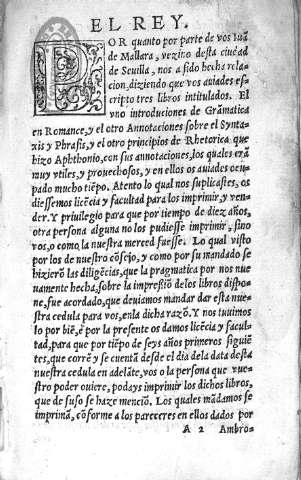 EL REY.
POR quanto por parte de vos Iuã
de Mallara, vezino desta ciudad
de Seuilla, nos a sido hecha rela-
cion, diziendo que vos auiades es-
cripto tres libros intitulados. El
vno introduciones de Grãmatica
en Romance, y el otro Annotaciones sobre el Synta-
xis y Phrasis, y el otro principios de Rhetorica que
hizo Aphthonio, con sus annotaciones, los quales erã
muy vtiles, y prouechosos, y en ellos os auiades ocu-
pado mucho tiẽpo. Atento lo qual nos suplicastes, os
diessemos licẽcia y facultad para los imprimir, y ven-
der. Y priuilegio para que por tiempo de diez años,
otra persona alguna no los pudiesse imprimir, sino
vos, o como la nuestra merced fuesse. Lo qual visto
por los de nuestro cõsejo, y como por su mandado se
hizierõ las diligẽcias, que la pragmatica por nos nue-
uamente hecha, sobre la impressiõ de los libros dispo-
ne, fue acordado, que deuiamos mandar dar esta nue-
stra cedula para vos, en la dicha razõ. Y nos tuuimos
lo por biẽ, è por la presente os damos licẽcia y facul-
tad, para que por tiẽpo de seys años primeros siguiẽ-
tes, que corrẽ y se cuentã desde el dia de la data desta
nuestra cedula en adelãte, vos o la persona que vue-
stro poder ouiere, podays imprimir los dichos libros,
que de suso se haze menciõ. Los quales mãdamos se
imprimã, cõforme a los pareceres en ellos dados por
A 2 Ambro-